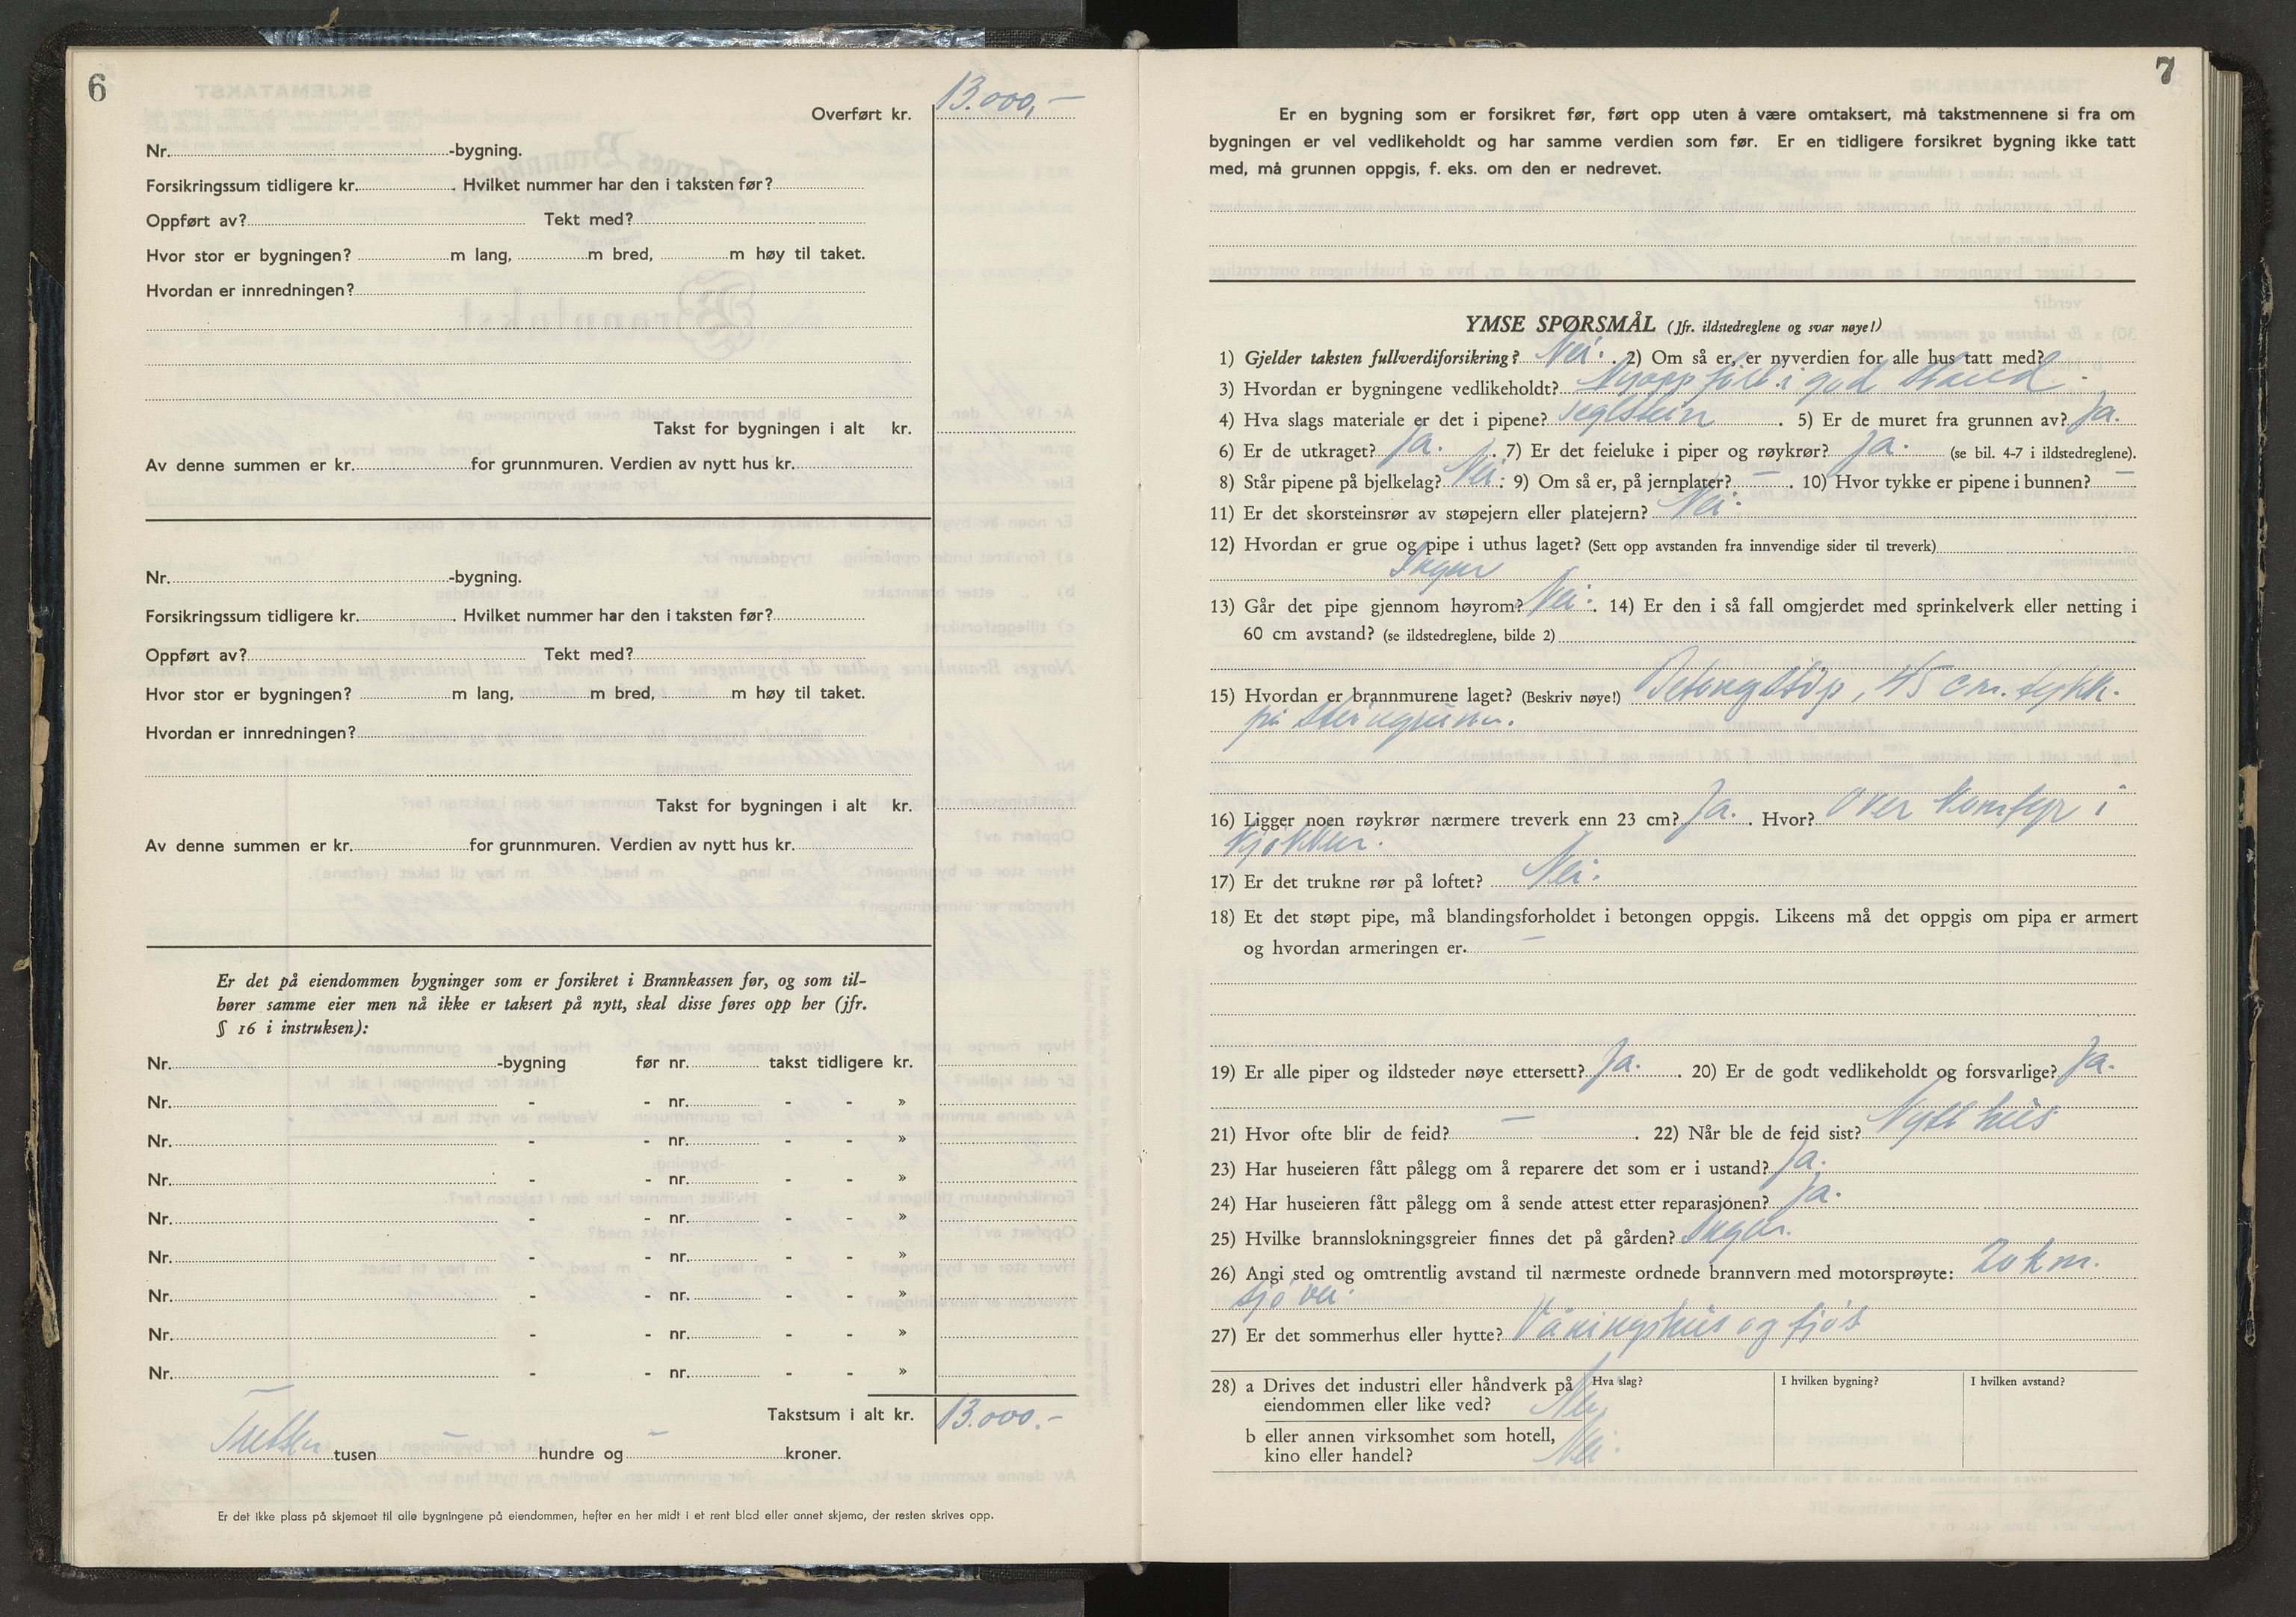 6
Overført kr. 13.000,-
Nr. -bygning.
Forsikringssum tidligere kr. . Hvilket nummer har den i taksten før?
Oppført av? Tekt med?
Hvor stor er bygningen? m lang, m bred, m høy til taket.
Hvordan er innredningen?
Takst for bygningen i alt kr.
Av denne summen er kr. for grunnmuren. Verdien av nytt hus kr.
Nr. -bygning.
Forsikringssum tidligere kr. . Hvilket nummer har den i taksten før?
Oppført av? Tekt med?
Hvor stor er bygningen? m lang, m bred, m høy til taket.
Hvordan er innredningen?
Takst for bygningen i alt kr.
Av denne summen er kr. for grunnmuren. Verdien av nytt hus kr.
Er det på eiendommen bygninger som er forsikret i Brannkassen før, og som til-
hører samme eier men nå ikke er taksert på nytt, skal disse føres opp her (jfr.
§ 16 i instruksen):
Nr. -bygning før nr. takst tidligere kr.
Nr. - - nr. - - »
Nr. - - nr. - - »
Nr. - - nr. - - »
Nr. - - nr. - - »
Nr. - - nr. - - »
Nr. - - nr. - - »
Nr. - - nr. - - »
Nr. - - nr. - - »
Takstsum i alt kr. 13.000.-
Tretten tusen - hundre og - kroner.
Er det ikke plass på skjemaet til alle bygningene på eiendommen, hefter en her midt i et rent blad eller annet skjema, der resten skrives opp.
7
Er en bygning som er forsikret før, ført opp uten å være omtaksert, må takstmennene si fra om
bygningen er vel vedlikeholdt og har samme verdien som før. Er en tidligere forsikret bygning ikke tatt
med, må grunnen oppgis, f. eks. om den er nedrevet.
YMSE SPØRSMÅL (Jfr. ildstedreglene og svar nøye!)
1) Gjelder taksten fullverdiforsikring? Nei. . 2) Om så er, er nyverdien for alle hus tatt med?
3) Hvordan er bygningene vedlikeholdt? Nyoppført i god stand.
4) Hva slags materiale er det i pipene? Teglstein . 5) Er de muret fra grunnen av? Ja.
6) Er de utkraget? Ja. . 7) Er det feieluke i piper og røykrør? Ja. (se bil. 4-7 i ildstedreglene).
8) Står pipene på bjelkelag? Nei. 9) Om så er, på jernplater? - . 10) Hvor tykke er pipene i bunnen? -
11) Er det skorsteinsrør av støpejern eller platejern? Nei.
12) Hvordan er grue og pipe i uthus laget? (Sett opp avstanden fra innvendige sider til treverk)
Ingen
13) Går det pipe gjennom høyrom? Nei. . 14) Er den i så fall omgjerdet med sprinkelverk eller netting i
60 cm avstand? (se ildstedreglene, bilde 2)
15) Hvordan er brannmurene laget? (Beskriv nøye!) Betongstøp, 45 cm. tykk.
på steingrunn.
16) Ligger noen røykrør nærmere treverk enn 23 cm? Ja. . Hvor? Over komfyr i
kjøkken.
17) Er det trukne rør på loftet? Nei.
18) Et det støpt pipe, må blandingsforholdet i betongen oppgis. Likeens må det oppgis om pipa er armert
og hvordan armeringen er. -
19) Er alle piper og ildsteder nøye ettersett? Ja. . 20) Er de godt vedlikeholdt og forsvarlige? Ja.
21) Hvor ofte blir de feid? - . 22) Når ble de feid sist? Nytt hus
23) Har huseieren fått pålegg om å reparere det som er i ustand? Ja.
24) Har huseieren fått pålegg om å sende attest etter reparasjonen? Ja.
25) Hvilke brannslokningsgreier finnes det på gården? Ingen.
26) Angi sted og omtrentlig avstand til nærmeste ordnede brannvern med motorsprøyte: 20 km.
sjøvei.
27) Er det sommerhus eller hytte? Våningshus og fjøs
28) a Drives det industri eller håndverk på Hva slag? I hvilken bygning? I hvilken avstand?
eiendommen eller like ved? Nei.
b eller annen virksomhet som hotell,
kino eller handel? Nei.